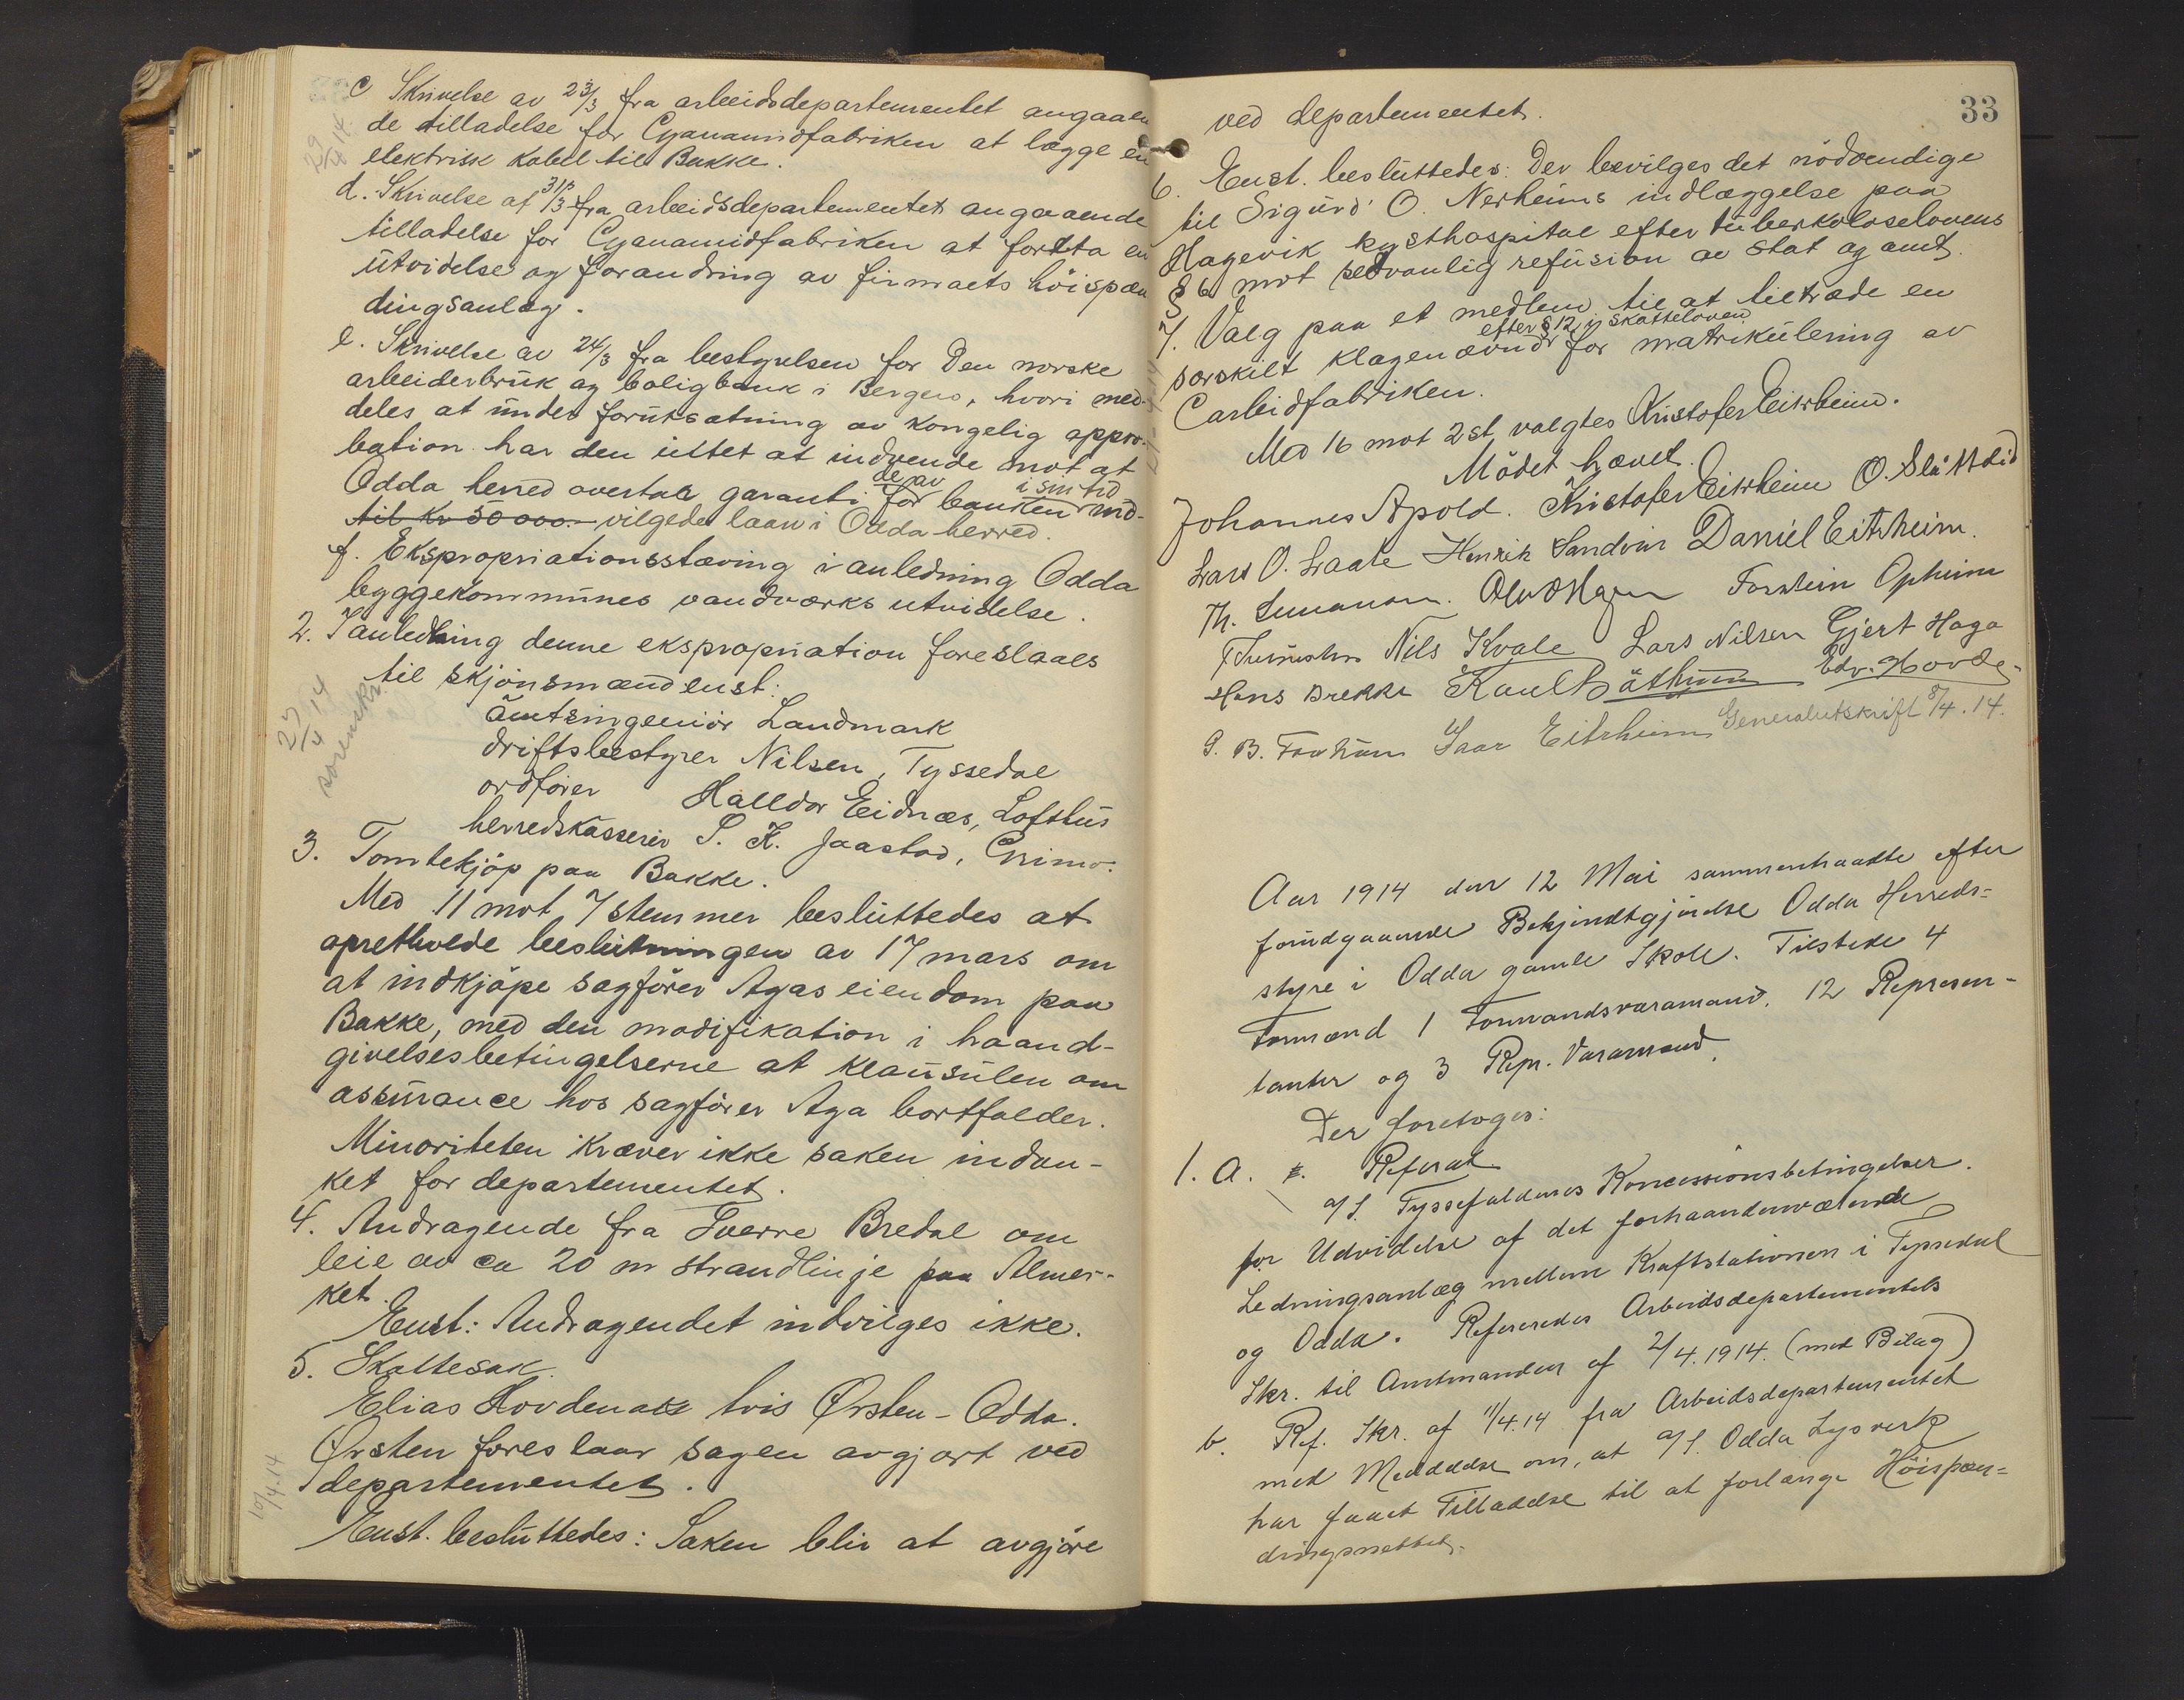 c Skrivelse av 23/3 fra arbeidsdepartementet angaaen
de tilladelse for Cyanamidfabriken at lægge en
elektrisk kabel til Bakke.
29/4 14
d. Skrivelse af 31/3 fra arbeidsdepartementet angaaende
tilladelse for Cyanamidfabriken at foreta en
utvidelse og forandring av firmaets höispæn
dingsanlæg.
e. Skrivelse av 24/3 fra bestyrelsen for Den norske
arbeiderbruk og boligbank i Bergen, hvori med-
deles at under forutsætning av kongelig appro-
bation har den intet at indvende mot at
Odda herred overtar garanti for de av banken i sin tid ind-
til Kr 50 000.- vilgede laan i Odda herred.
f. Ekspropriationsstævning i anledning Odda
byggekommunes vandværks utvidelse.
2. I anledning denne ekspropriation foreslaaes
til skjönsmænd enst:
27/4 14
sorenskr.
amtsingeniör Landmark
driftsbestyrer Nilsen, Tyssedal
ordförer Halldor Eidnæs, Lofthus
herredskasserer S. K. Jaastad, Grimo.
3. Tomtekjöp paa Bakke.
Med 11 mot 7 stemmer besluttedes at
opretholde beslutningen av 17 mars om
at indkjöpe sagförer Agas eiendom paa
Bakke, med den modifikation i haand-
givelsesbetingelserne at klausulen om
assurance hos sagförer Aga bortfalder.
Minoriteten kræver ikke saken indan-
ket for departementet.
4. Andragende fra Sverre Bredal om
leie av ca 20 m strandlinje paa Almer-
ket.
Enst: Andragendet indvilges ikke.
5. Skattesak.
Elias Hovdenak tvis Ørsten - Odda.
Ørsten foreslaar sagen avgjort ved
departementet.
10/4.14
Enst. besluttedes: Saken blir at avgjöre
33
ved departementet.
6. Enst. besluttedes: Der bevilges det nödvendige
til Sigurd O. Nerheims indlæggelse paa
Hagevik kysthospital efter tuberkuloselovens
§ 6 mot sedvanlig refusion av stat og amt.
7. Valg paa et medlem til at tiltræde en
særskilt klagenævnd efter § 12 i skatteloven for matrikulering av
Carbidfabriken.
Med 16 mot 2 st valgtes Kristofer Eitrheim.
Mödet hævet.
Johannes Apold. Kristofer Eitrheim O. Slåttelid
Lars O. Laate Henrik Sandvin Daniel Eitrheim.
Torstein Opheim
Nils Kvale Lars Nilsen Gjert Haga
Hans Brekke Edv. Hovde
Generalutskrift 8/4.14.
Isar Eitrheim
Aar 1914 den 12 Mai sammentraadte efter
forudgaaende Bekjendtgjørelse Odda Herreds-
styre i Odda gamle Skole. Tilstede 4
Formænd 1 Formandsvaramand. 12 Represen-
tanter og 3 Repr. Varamænd.
Der foretoges:
1. a. Referat
a/s. Tyssefaldenes Koncessionsbetingelser
for Udvidelse af det forhaandenværende
Ledningsanlæg mellem Kraftstationen i Tyssedal
og Odda. Refereredes Arbeidsdepartementets
Skr. til Amtmanden af 2/4.1914. (med Bilag)
b. Ref. Skr. af 11/4.14 fra Arbeidsdepartementet
med Meddelelse om, at a/s. Odda Lysverk
har faaet Tilladelse til at forlænge Höispæn-
dingsnettet.